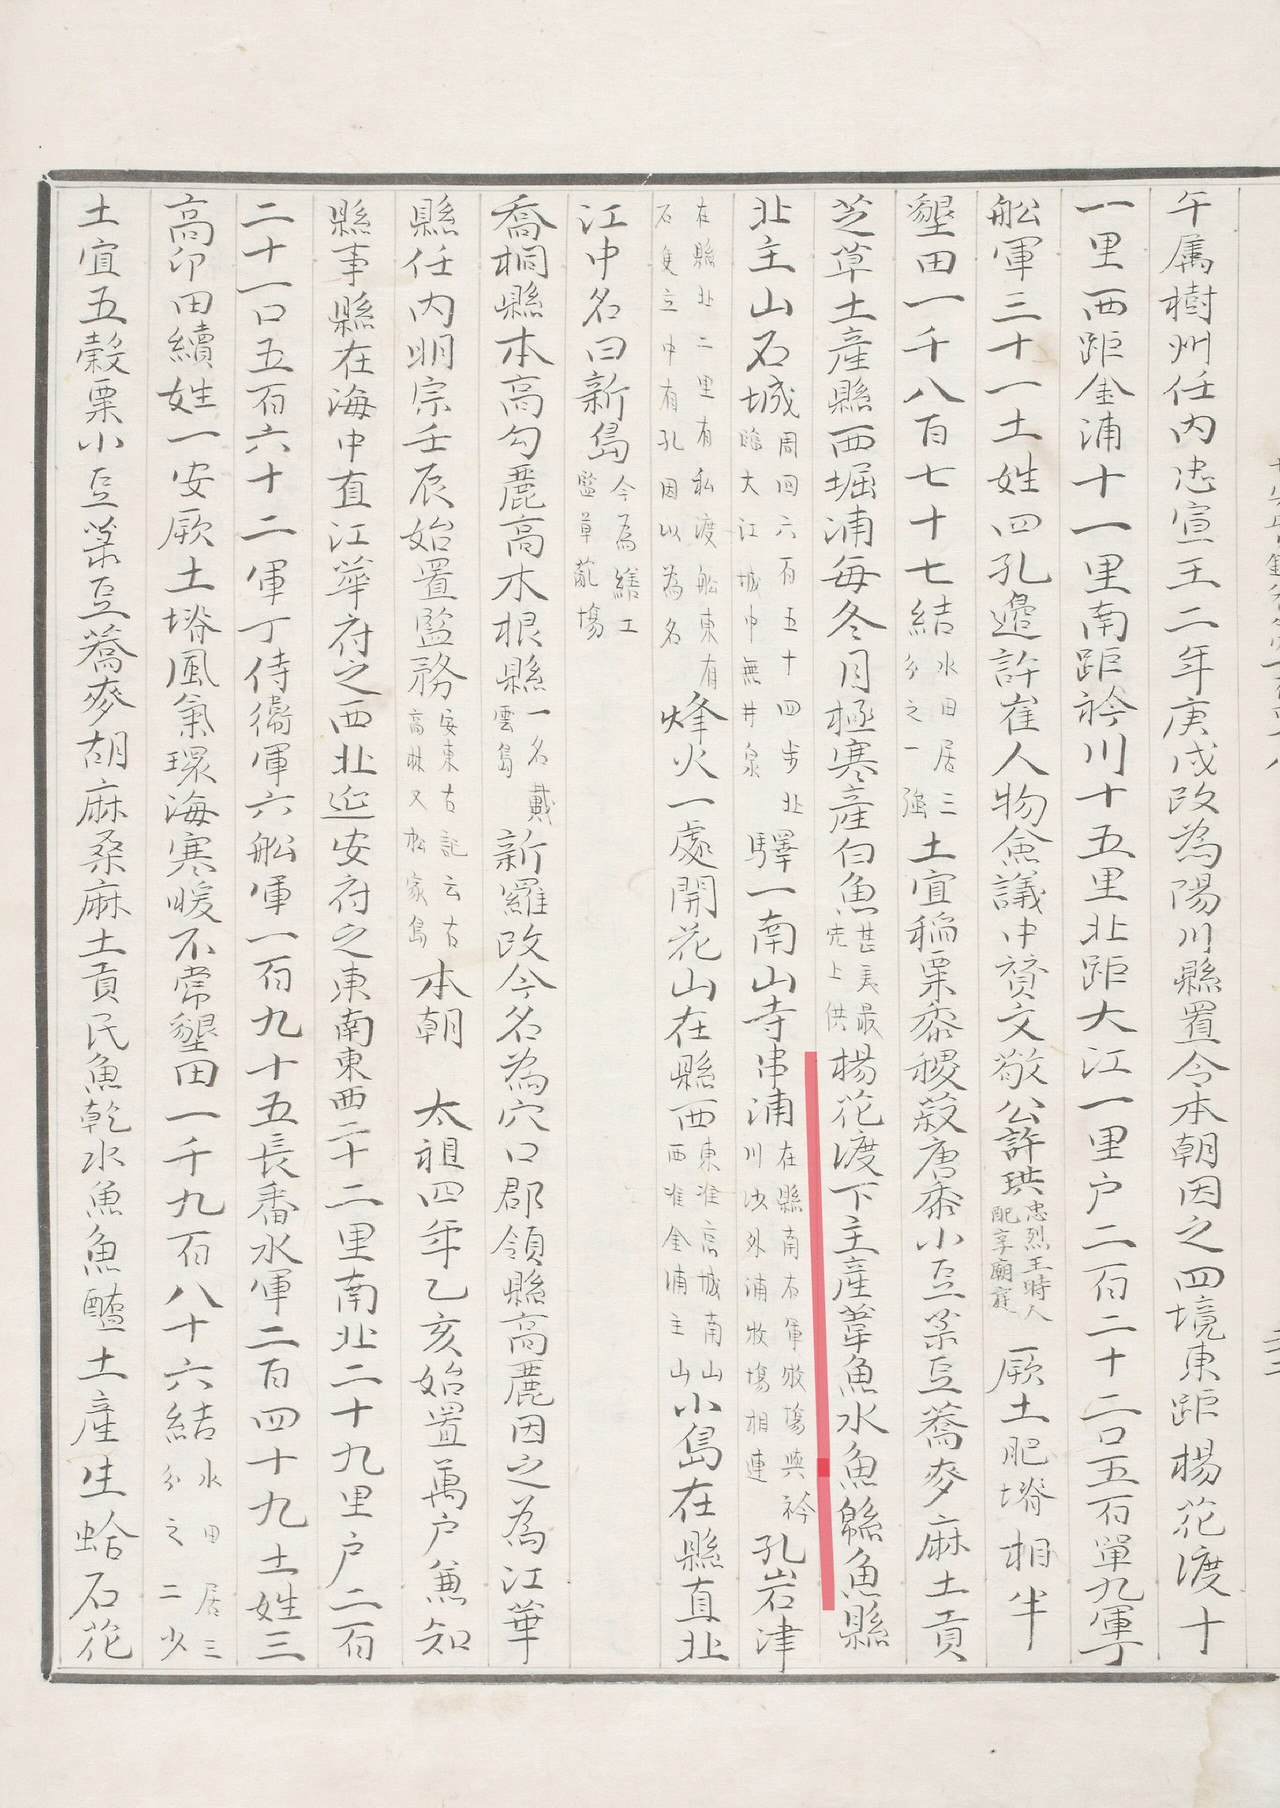 午属樹州任內忠宣王二年庚戌改為陽川縣置令本朝因之四境東距楊花渡十
一里西距金浦十一里南距衿川十五里北距大江一里户二百二十二口五百單九軍丁
舩軍三十一土姓四孔邉許崔人物僉議中贊文敬公許珙忠烈王時人配享廟庭厥土肥塉相半
墾田一千八百七十七結水田居三分之一強土宜稲粟黍稷菽唐黍小豆菉豆蕎麥麻土貢
芝草土產縣西堀浦每冬月極寒產白魚甚美最先上供楊花渡下主產葦魚水魚緜魚縣
北主山石城周回六百五十四步北臨大江城中無井泉驛一南山寺串浦在縣南右軍牧塲與衿川沙外浦牧塲相連孔岩津
在縣北二里有私渡舩東有石隻立中有孔因以為名烽火一處開花山在縣西東准高城南山西准金浦主山小島在縣直北
江中名曰新島今為繕工監草菰塲
喬桐縣本高勾麗高木根縣一名戴雲島新羅改今名為穴口郡領縣高麗因之為江華
縣任內明宗壬辰始置監務安東古記云古高林又松家島本朝 太祖四年乙亥始置萬户兼知
縣事縣在海中直江華府之西北延安府之東南東西二十二里南北二十九里户二百
二十一口五百六十二軍丁侍衛軍六舩軍一百九十五長番水軍二百四十九土姓三
高印田續姓一安厥土塉風氣環海寒暖不常墾田一千九百八十六結水田居三分之二少
土宜五穀粟小豆菉豆蕎麥胡麻桑麻土貢民魚乾水魚魚醢土產生蛤石花